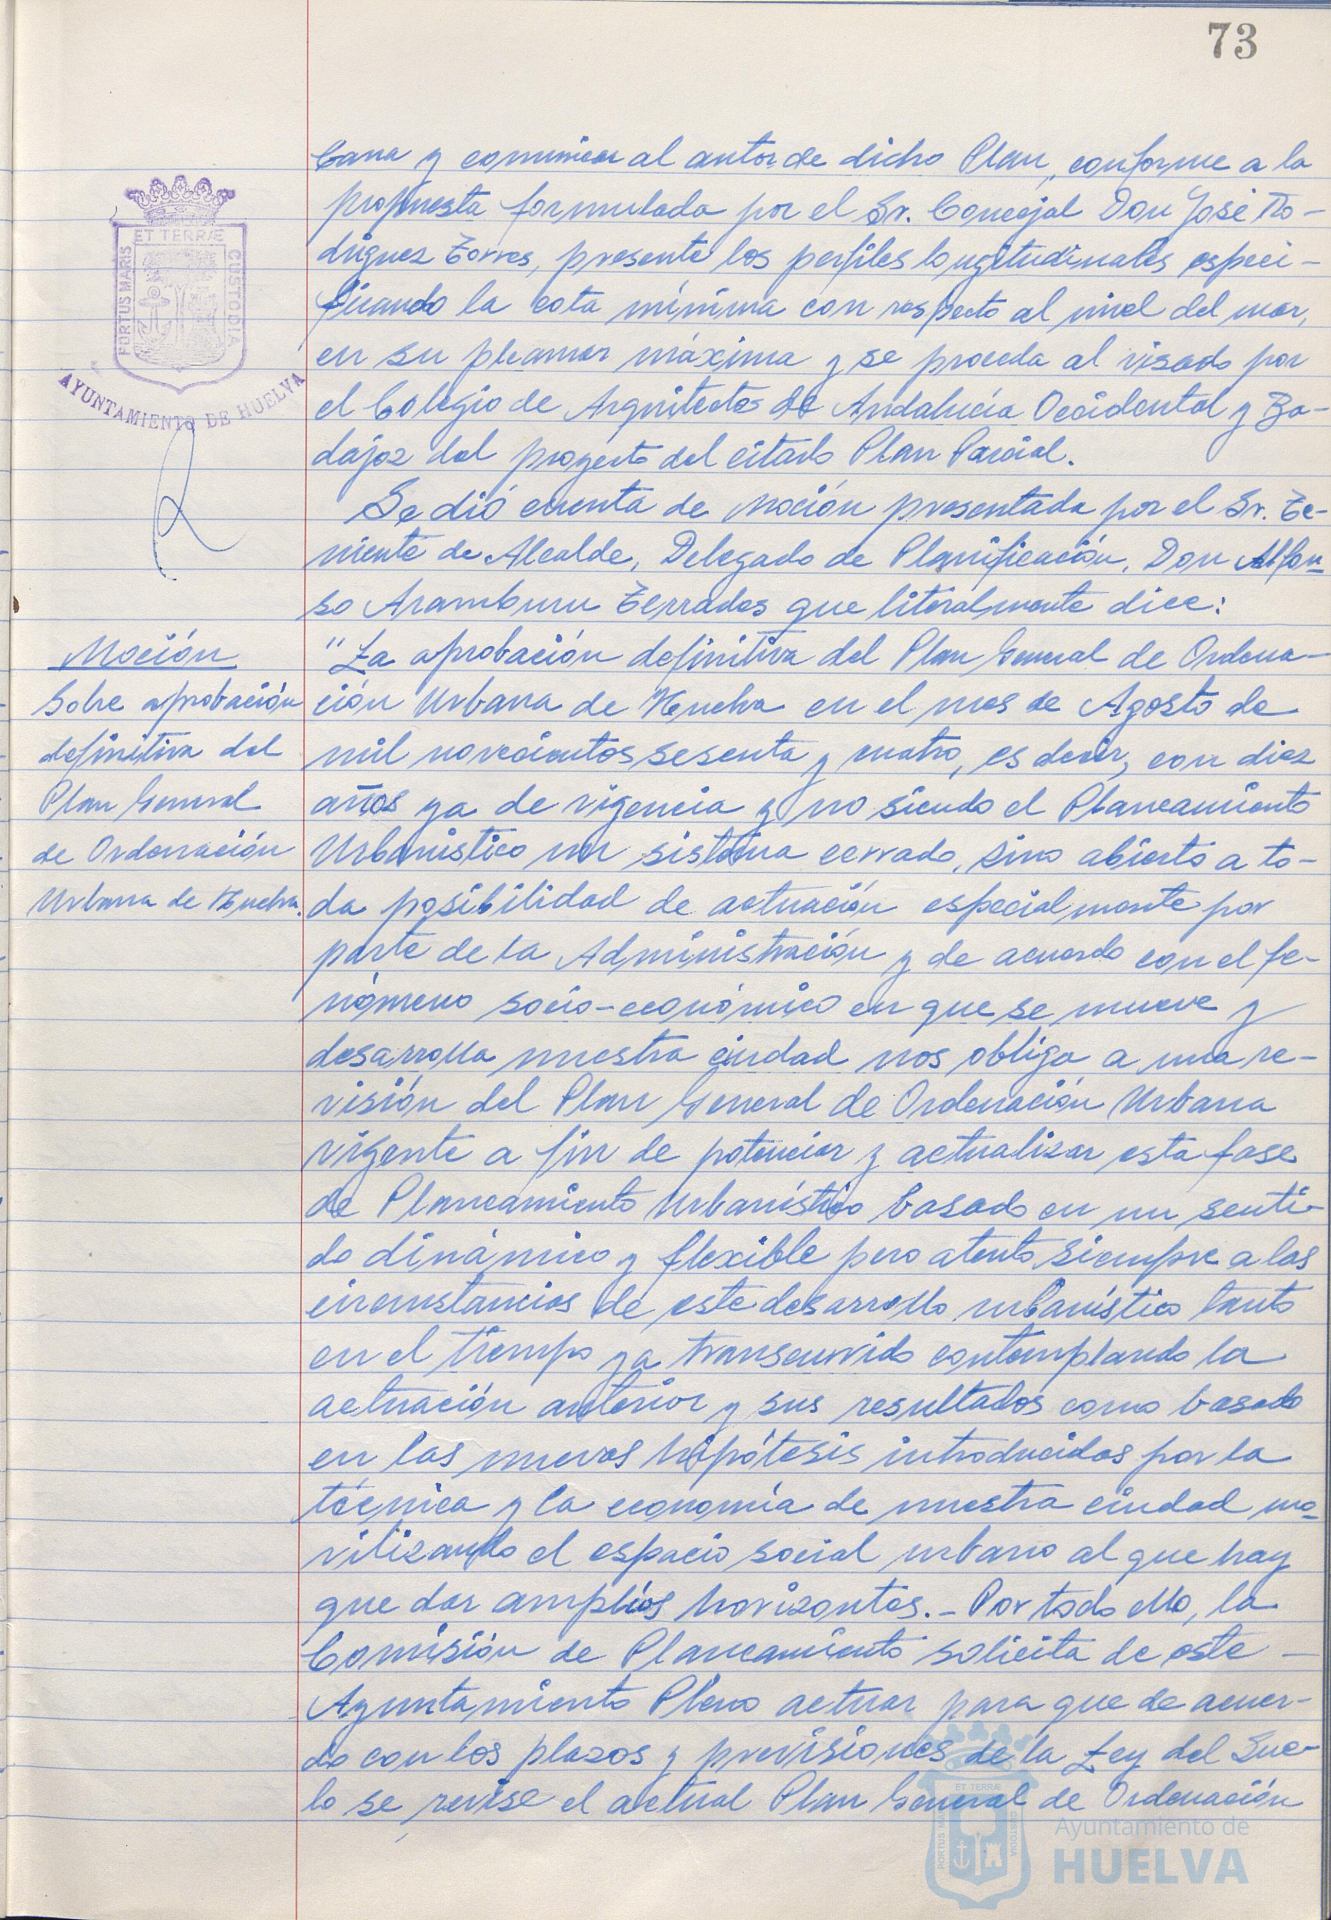 73
bana y comunicar al autor de dicho Plan, conforme a la
propuesta formulada por el Sr. Concejal Don José Ro-
driguez Torres, presente los perfiles longitudinales especi-
ficando la cota mínima con respecto al nivel del mar,
en su pleamar máxima y se proceda al visado por
el Colegio de Arquitectos de Andalucía Occidental y Ba-
dajoz del proyecto del citado Plan Parcial.
Se dió cuenta de moción presentada por el Sr. Te-
niente de Alcalde, Delegado de Planificación, Don Alfon-
so Aramburu Terrades que literalmente dice:
"La aprobación definitiva del Plan General de Ordena-
ción Urbana de Huelva en el mes de Agosto de
mil novecientos sesenta y cuatro, es decir, con diez
años ya de vigencia y no siendo el Planeamiento
Urbanístico un sistema cerrado, sino abierto a to-
da posibilidad de actuación especialmente por
parte de la Administración y de acuerdo con el fe-
nómeno socio-económico en que se mueve y
desarrolla nuestra ciudad nos obliga a una re-
visión del Plan General de Ordenación Urbana
vigente a fin de potenciar y actualizar esta fase
de Planeamiento Urbanístico basado en un senti-
do dinámico y flexible pero atento siempre a las
circunstancias de este desarrollo urbanístico tanto
en el tiempo ya transcurrido contemplando la
actuación anterior y sus resultados como basado
en las nuevas hipótesis introducidas por la
técnica y la economía de nuestra ciudad mo-
vilizando el espacio social urbano al que hay
que dar amplios horizontes.- Por todo ello, la
Comisión de Planeamiento solicita de este -
Ayuntamiento Pleno actuar para que de acuer-
do con los plazos y previsiones de la Ley del Sue-
lo se revise el actual Plan General de Ordenación
Moción
Sobre aprobación
definitiva del
Plan General
de Ordenación
Urbana de Huelva.
PORTUS MARIS
ET TERRÆ
CUSTODIA
AYUNTAMIENTO DE HUELVA
PORTUS MARIS
ET TERRÆ
CUSTODIA
Ayuntamiento de
HUELVA